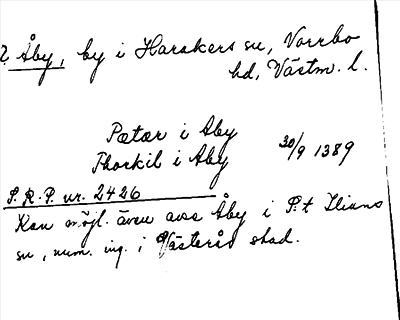 ? Åby, by i Harakers sn, Norrbo
hd, Västm. l.
Pætær i Aby
Thorkil i Aby 30/9 1389
S.R.P. nr. 2426
Kan möjl. även avse Åby i P:t Ilians
sn, num. ing. i Västerås stad.